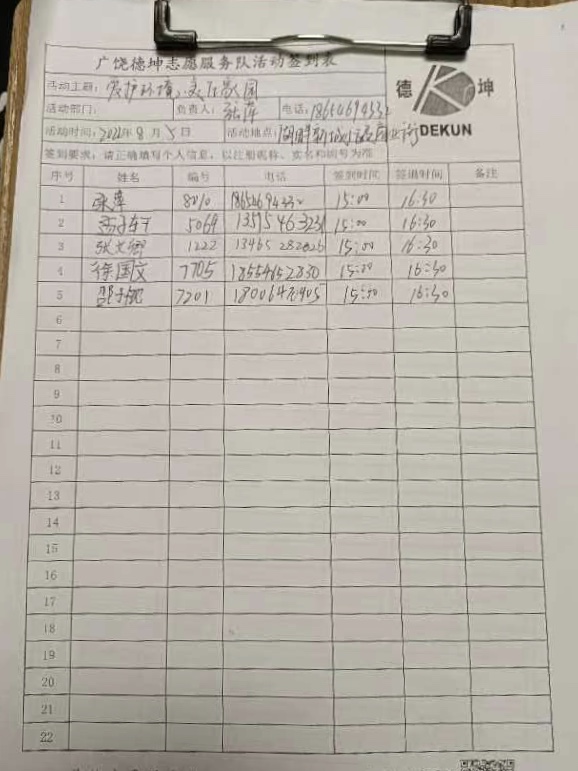 广饶德坤志愿服务队活动签到表
德 坤
DEKUN
活动主题：爱护环境，美在家园
活动部门： 负责人：张萍 电话：18654694332
活动时间：2021年8月5日 活动地点：
签到要求：请正确填写个人信息，以注册昵称、实名和编号为准
序号 姓名 编号 电话 签到时间 签退时间 备注
1 张萍 8010 18654694332 15:00 16:30
2 5069 15:00 16:30
3 1222 13465282626 15:00 16:30
4 徐国文 7705 18554652830 15:00 16:30
5 7201 15:00 16:30
6
7
8
9
10
11
12
13
14
15
16
17
18
19
20
21
22